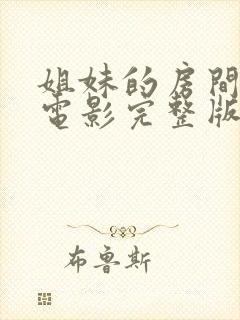 姐妹的房間
電影完整版
布魯斯